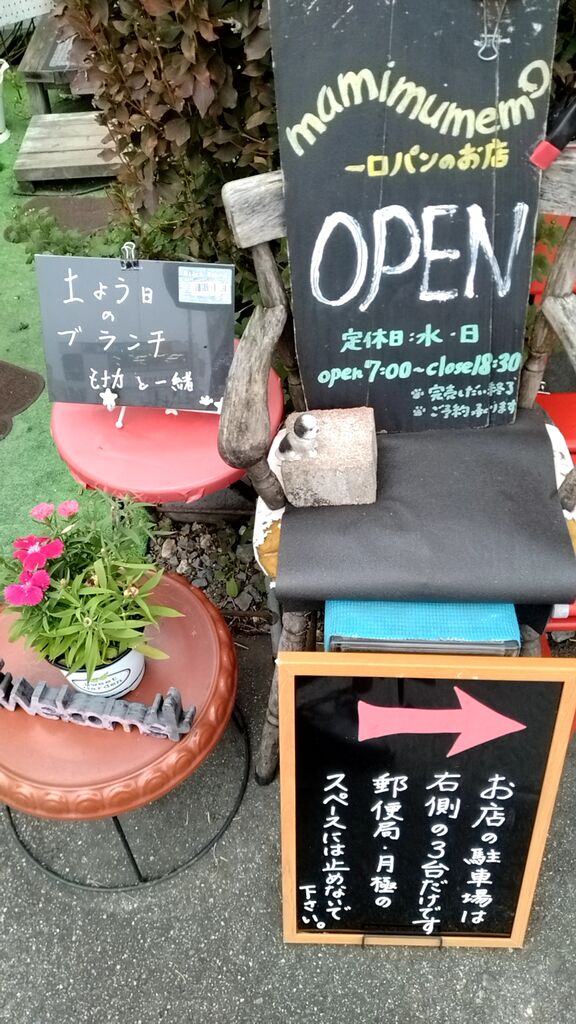 mamimumemo
一口パンのお店
OPEN
定休日:水・日
open 7:00〜close 18:30
完売しだい終了
ご予約承ります
土よう日
の
ブランチ
モナカと一緒
sweet
garden
Welcome
お店の駐車場は
右側の3台だけです
郵便局・月極の
スペースには止めないで
下さい。